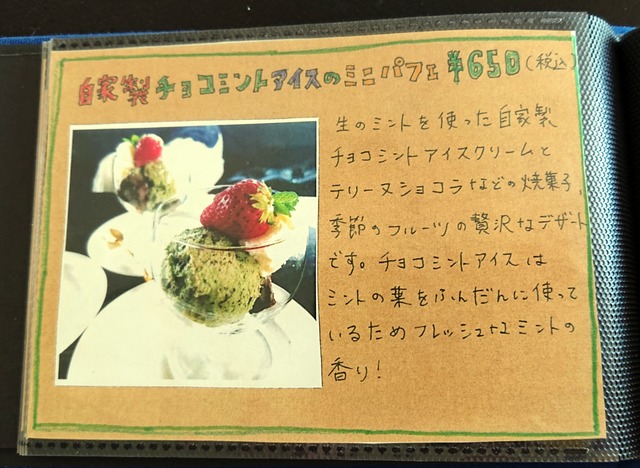 自家製チョコミントアイスのミニパフェ ¥650(税込)
生のミントを使った自家製
チョコミントアイスクリームと
テリーヌショコラなどの焼菓子、
季節のフルーツの贅沢なデザート
です。チョコミントアイスは
ミントの葉をふんだんに使って
いるためフレッシュなミントの
香り!